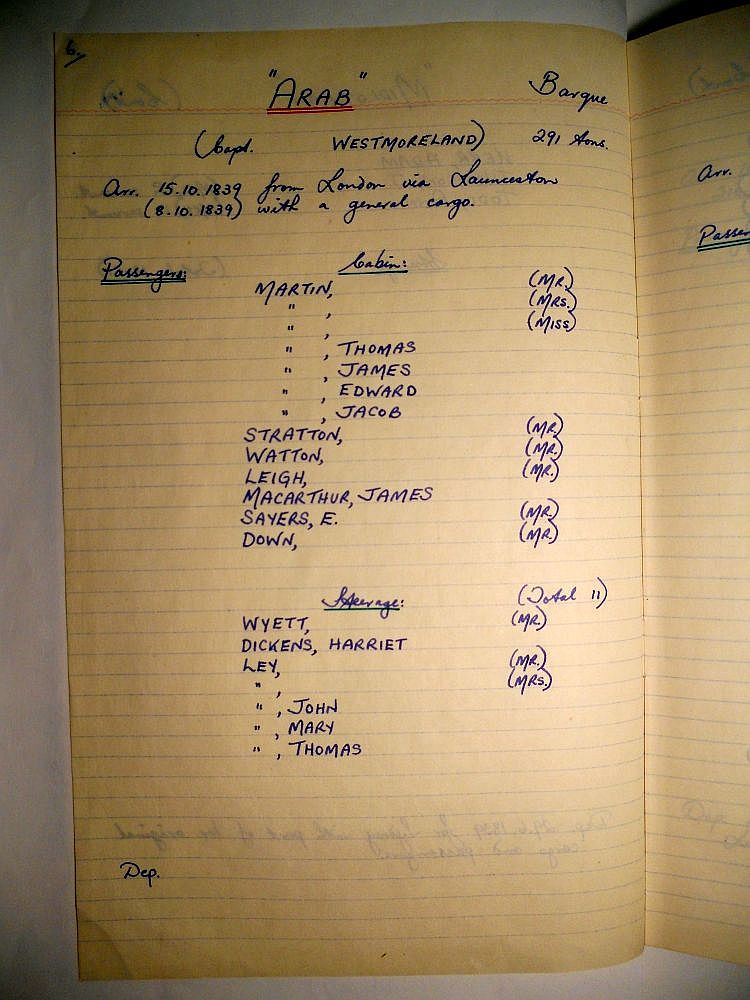 6.
"ARAB" Barque
(Capt. WESTMORELAND) 291 tons.
Arr. 15.10.1839 from London via Launceston
(8.10.1839) with a general cargo.
Passengers: Cabin:
MARTIN, (MR.)
" , (MRS.)
" , (MISS)
" , THOMAS
" , JAMES
" , EDWARD
" , JACOB
STRATTON, (MR.)
WATTON, (MR.)
LEIGH, (MR.)
MACARTHUR, JAMES
SAYERS, E. (MR.)
DOWN, (MR.)
Steerage: (Total 11)
WYETT, (MR.)
DICKENS, HARRIET
LEY, (MR.)
" , (MRS.)
" , JOHN
" , MARY
" , THOMAS
Dep.
Arr.